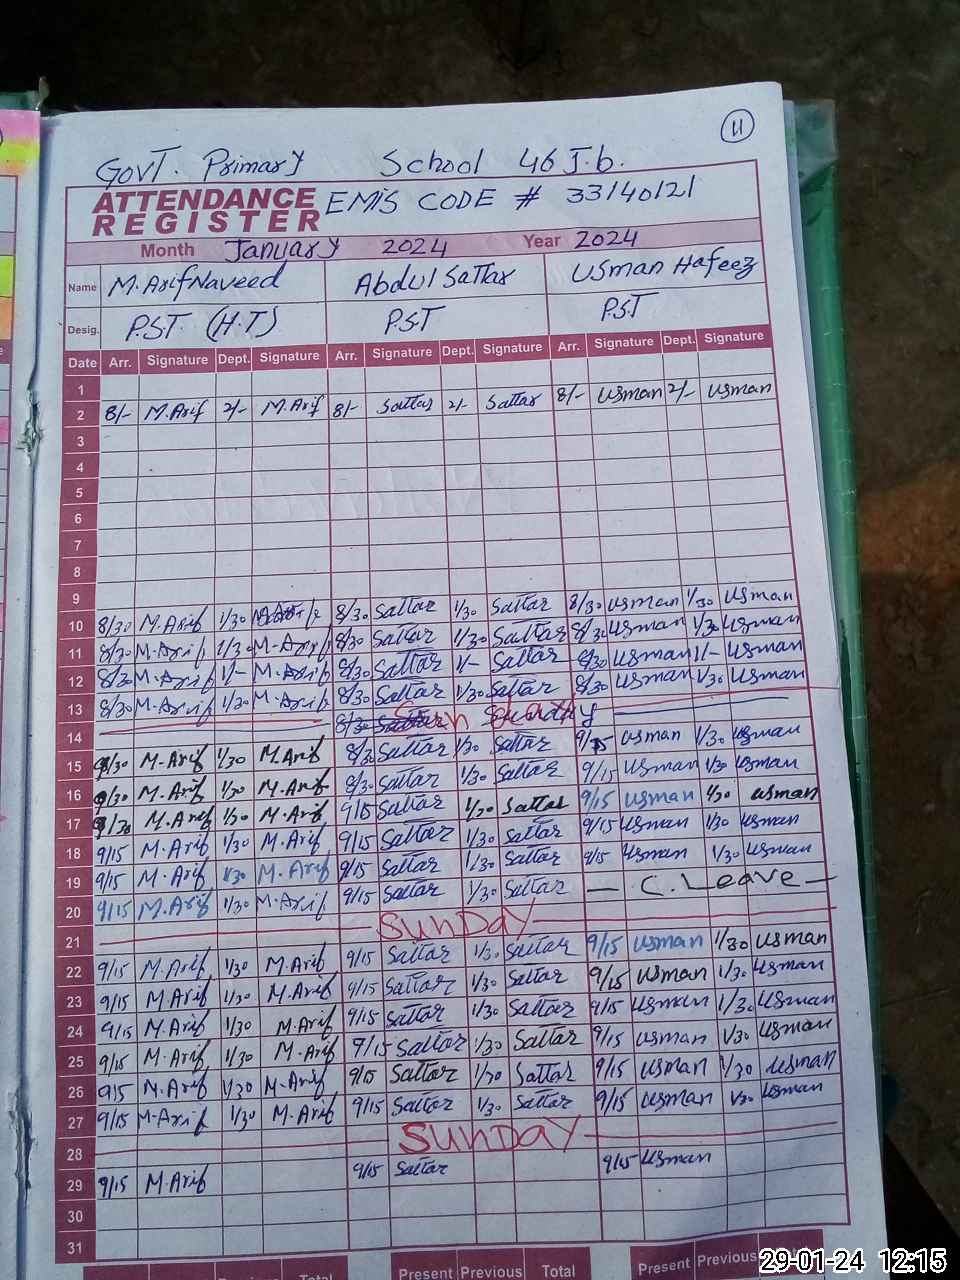 11
GOVT. Primary School 46 J.b.
ATTENDANCE REGISTER EMIS CODE # 33140121
Month January 2024 Year 2024
Name M. Arif Naveed Abdul Sattar Usman Hafeez
Desig. P.S.T. (H.T) P.S.T P.S.T
Date Arr. Signature Dept. Signature Arr. Signature Dept. Signature Arr. Signature Dept. Signature
1
2 8/- M.Arif 2/- M.Arif 8/- Sattar 2/- Sattar 8/- usman 2/- usman
3
4
5
6
7
8
9
10 8/30 M.Arif 1/30 8/30 Sattar 1/30 Sattar 8/30 usman 1/30 usman
11 8/30 M.Arif 1/30 M.Arif 8/30 Sattar 1/30 Sattar 8/30 usman 1/30 usman
12 8/30 M.Arif 1/- M.Arif 8/30 Sattar 1/- Sattar 8/30 usman 1/- usman
13 8/30 M.Arif 1/30 M.Arif 8/30 Sattar 1/30 Sattar 8/30 usman 1/30 usman
14 8/30 Sunday
15 8/30 M.Arif 1/30 M.Arif 8/30 Sattar 1/30 Sattar 9/15 usman 1/30 usman
16 8/30 M.Arif 1/30 M.Arif 8/30 Sattar 1/30 Sattar 9/15 usman 1/30 usman
17 8/30 M.Arif 1/30 M.Arif 9/15 Sattar 1/30 Sattar 9/15 usman 1/30 usman
18 9/15 M.Arif 1/30 M.Arif 9/15 Sattar 1/30 Sattar 9/15 usman 1/30 usman
19 9/15 M.Arif 1/30 M.Arif 9/15 Sattar 1/30 Sattar 9/15 usman 1/30 usman
20 9/15 M.Arif 1/30 M.Arif 9/15 Sattar 1/30 Sattar — C. Leave —
21 SUNDAY
22 9/15 M.Arif 1/30 M.Arif 9/15 Sattar 1/30 Sattar 9/15 usman 1/30 usman
23 9/15 M.Arif 1/30 M.Arif 9/15 Sattar 1/30 Sattar 9/15 usman 1/30 usman
24 9/15 M.Arif 1/30 M.Arif 9/15 Sattar 1/30 Sattar 9/15 usman 1/30 usman
25 9/15 M.Arif 1/30 M.Arif 9/15 Sattar 1/30 Sattar 9/15 usman 1/30 usman
26 9/15 M.Arif 1/30 M.Arif 9/15 Sattar 1/30 Sattar 9/15 usman 1/30 usman
27 9/15 M.Arif 1/30 M.Arif 9/15 Sattar 1/30 Sattar 9/15 usman 1/30 usman
28 SUNDAY
29 9/15 M.Arif 9/15 Sattar 9/15 usman
30
31
Previous Total Present Previous Total Present Previous
29-01-24 12:15